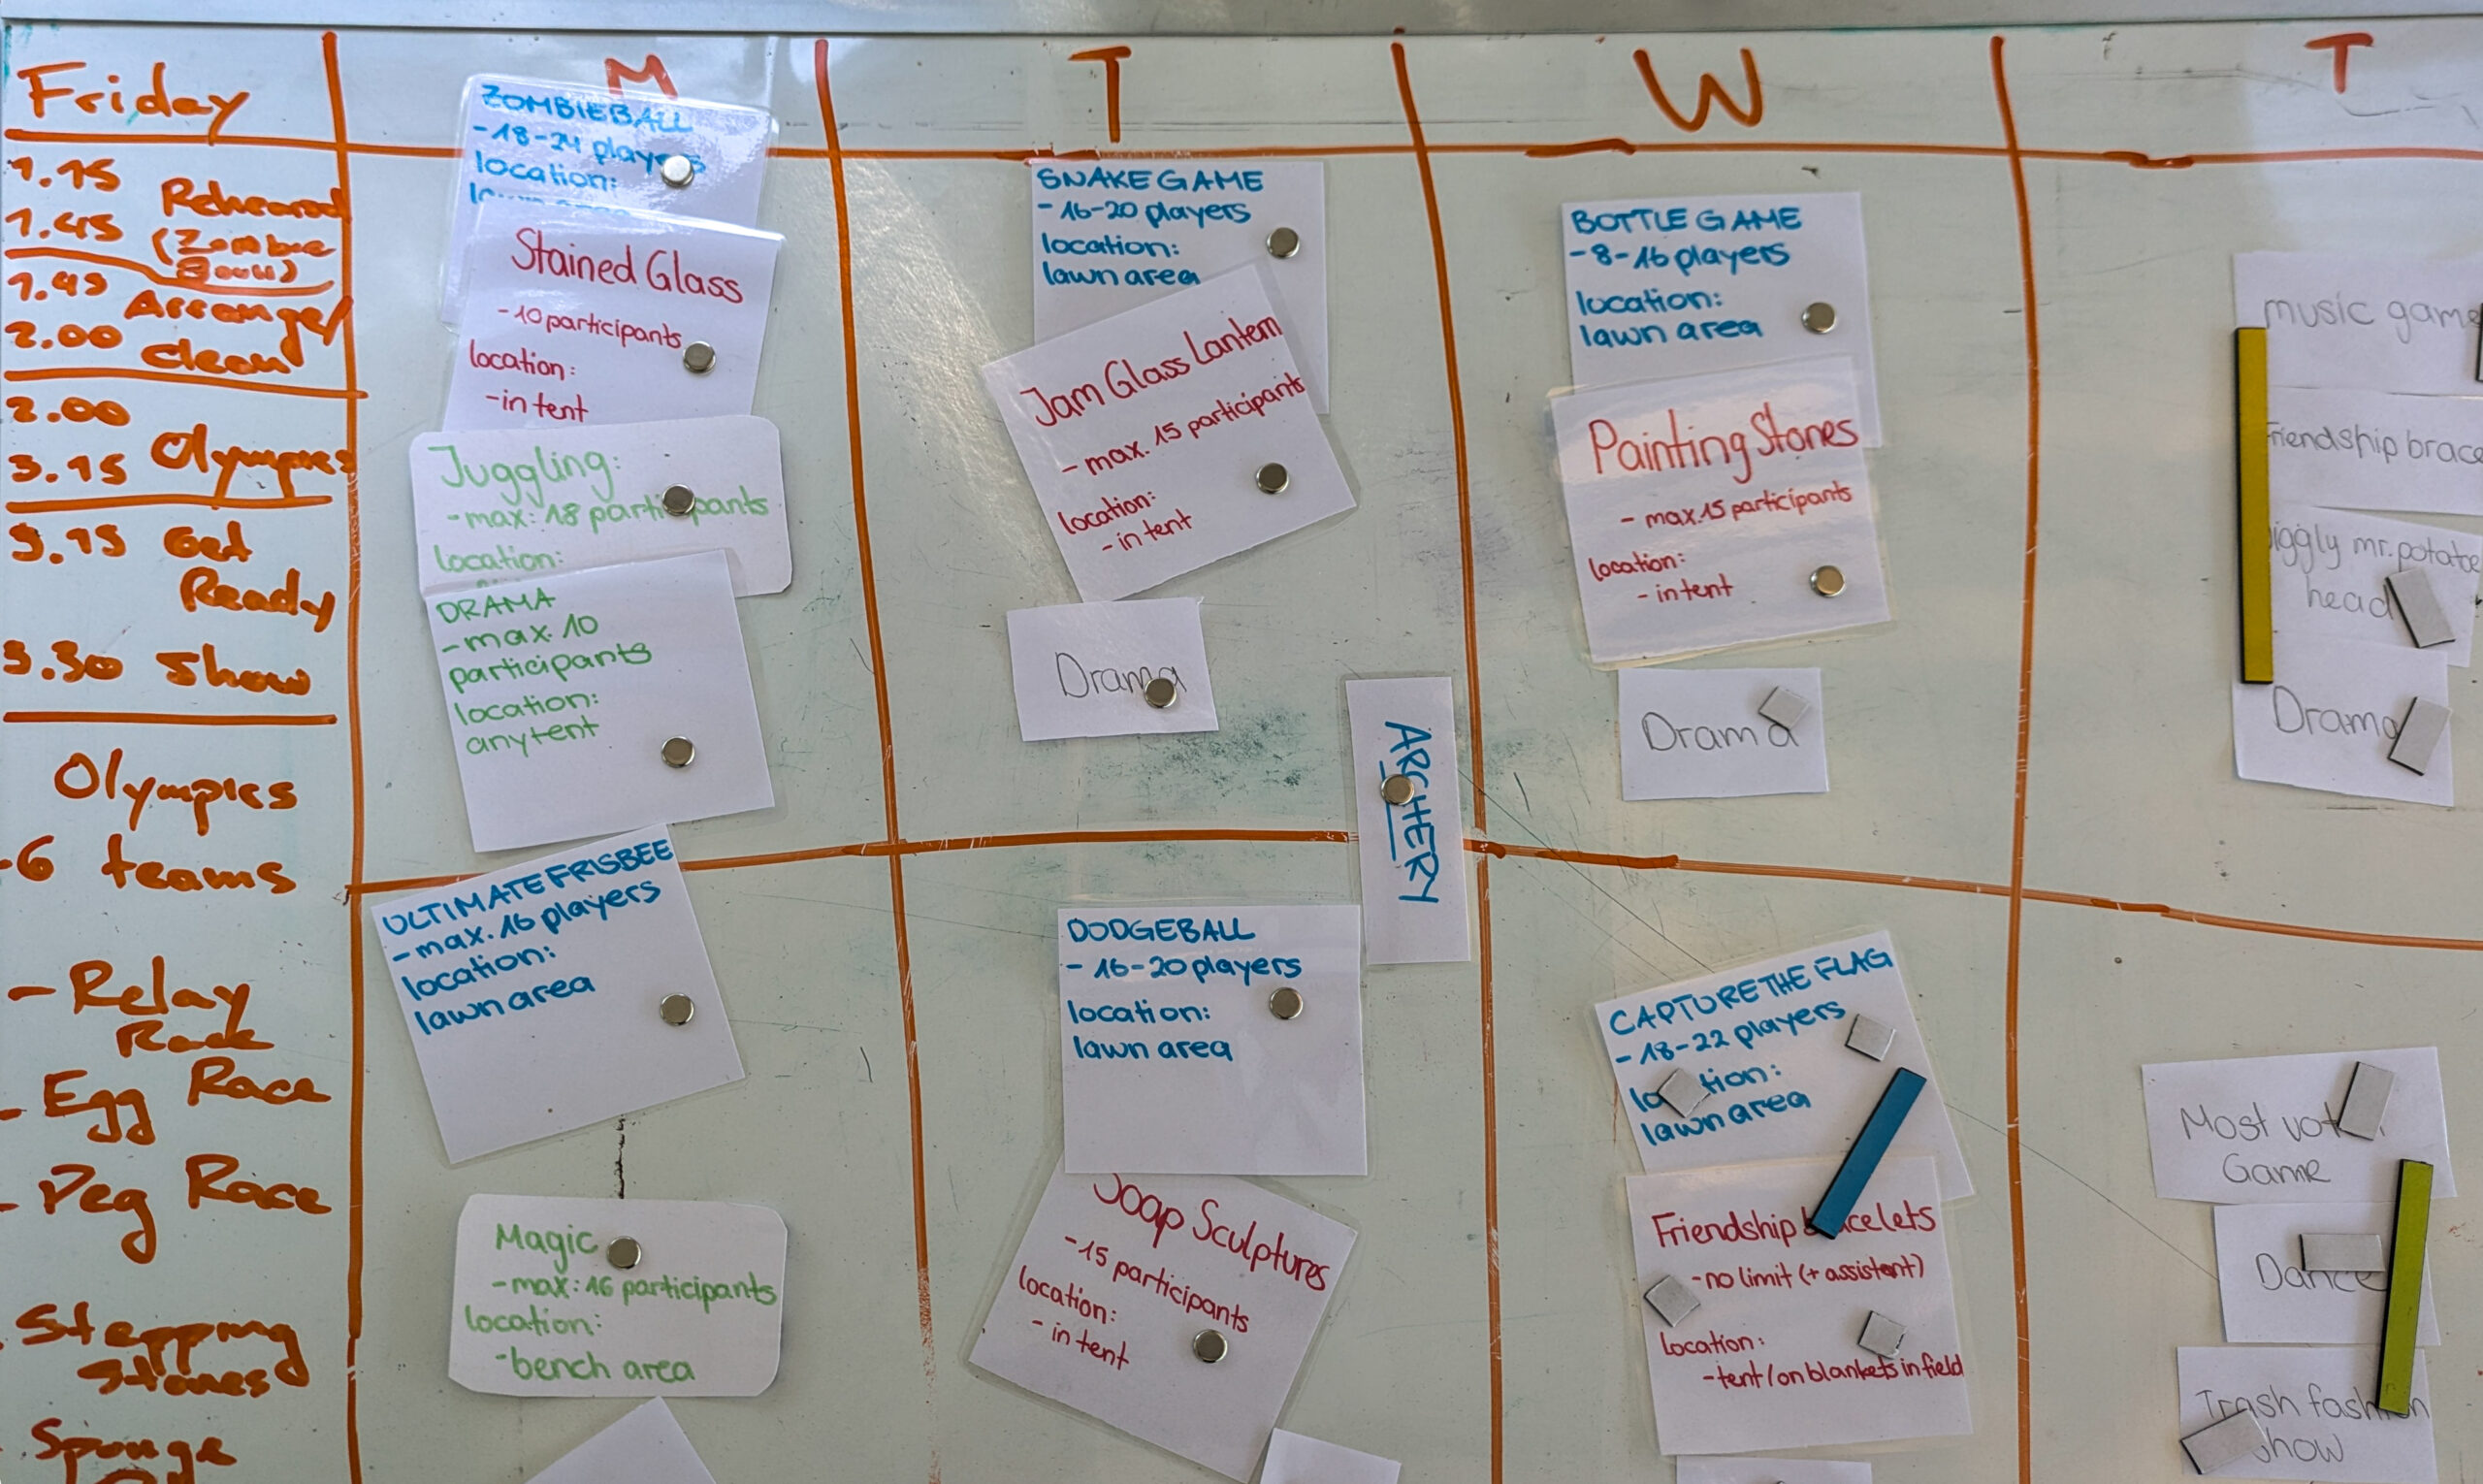 Friday
1.15
1.45
Rehearsal
(Zombie
1.45
2.00
Arrange/
clean
2.00
3.15
Olympics
3.15 Get
Ready
3.30 Show
Olympics
-6 teams
- Relay
Race
- Egg Race
- Peg Race
Stepping
Stones
Sponge
M
ZOMBIEBALL
-18-24 players
location:
Stained Glass
-10 participants
location:
-in tent
Juggling:
-max: 18 participants
location:
DRAMA
-max. 10
participants
location:
any tent
ULTIMATE FRISBEE
- max. 16 players
location:
lawn area
Magic
-max: 16 participants
location:
-bench area
T
SNAKE GAME
- 16-20 players
location:
lawn area
Jam Glass Lantern
- max. 15 participants
location:
- in tent
Drama
ARCHERY
DODGEBALL
- 16-20 players
location:
lawn area
Soap Sculptures
-15 participants
location:
- in tent
W
BOTTLE GAME
-8-16 players
location:
lawn area
Painting Stones
- max. 15 participants
location:
- in tent
Drama
CAPTURE THE FLAG
- 18-22 players
location:
lawn area
Friendship bracelets
-no limit (+ assistent)
location:
-tent/on blankets in field
T
music game
Friendship brace
iggly mr. potatoe
head
Drama
Most
Game
Dance
Trash fashion
show